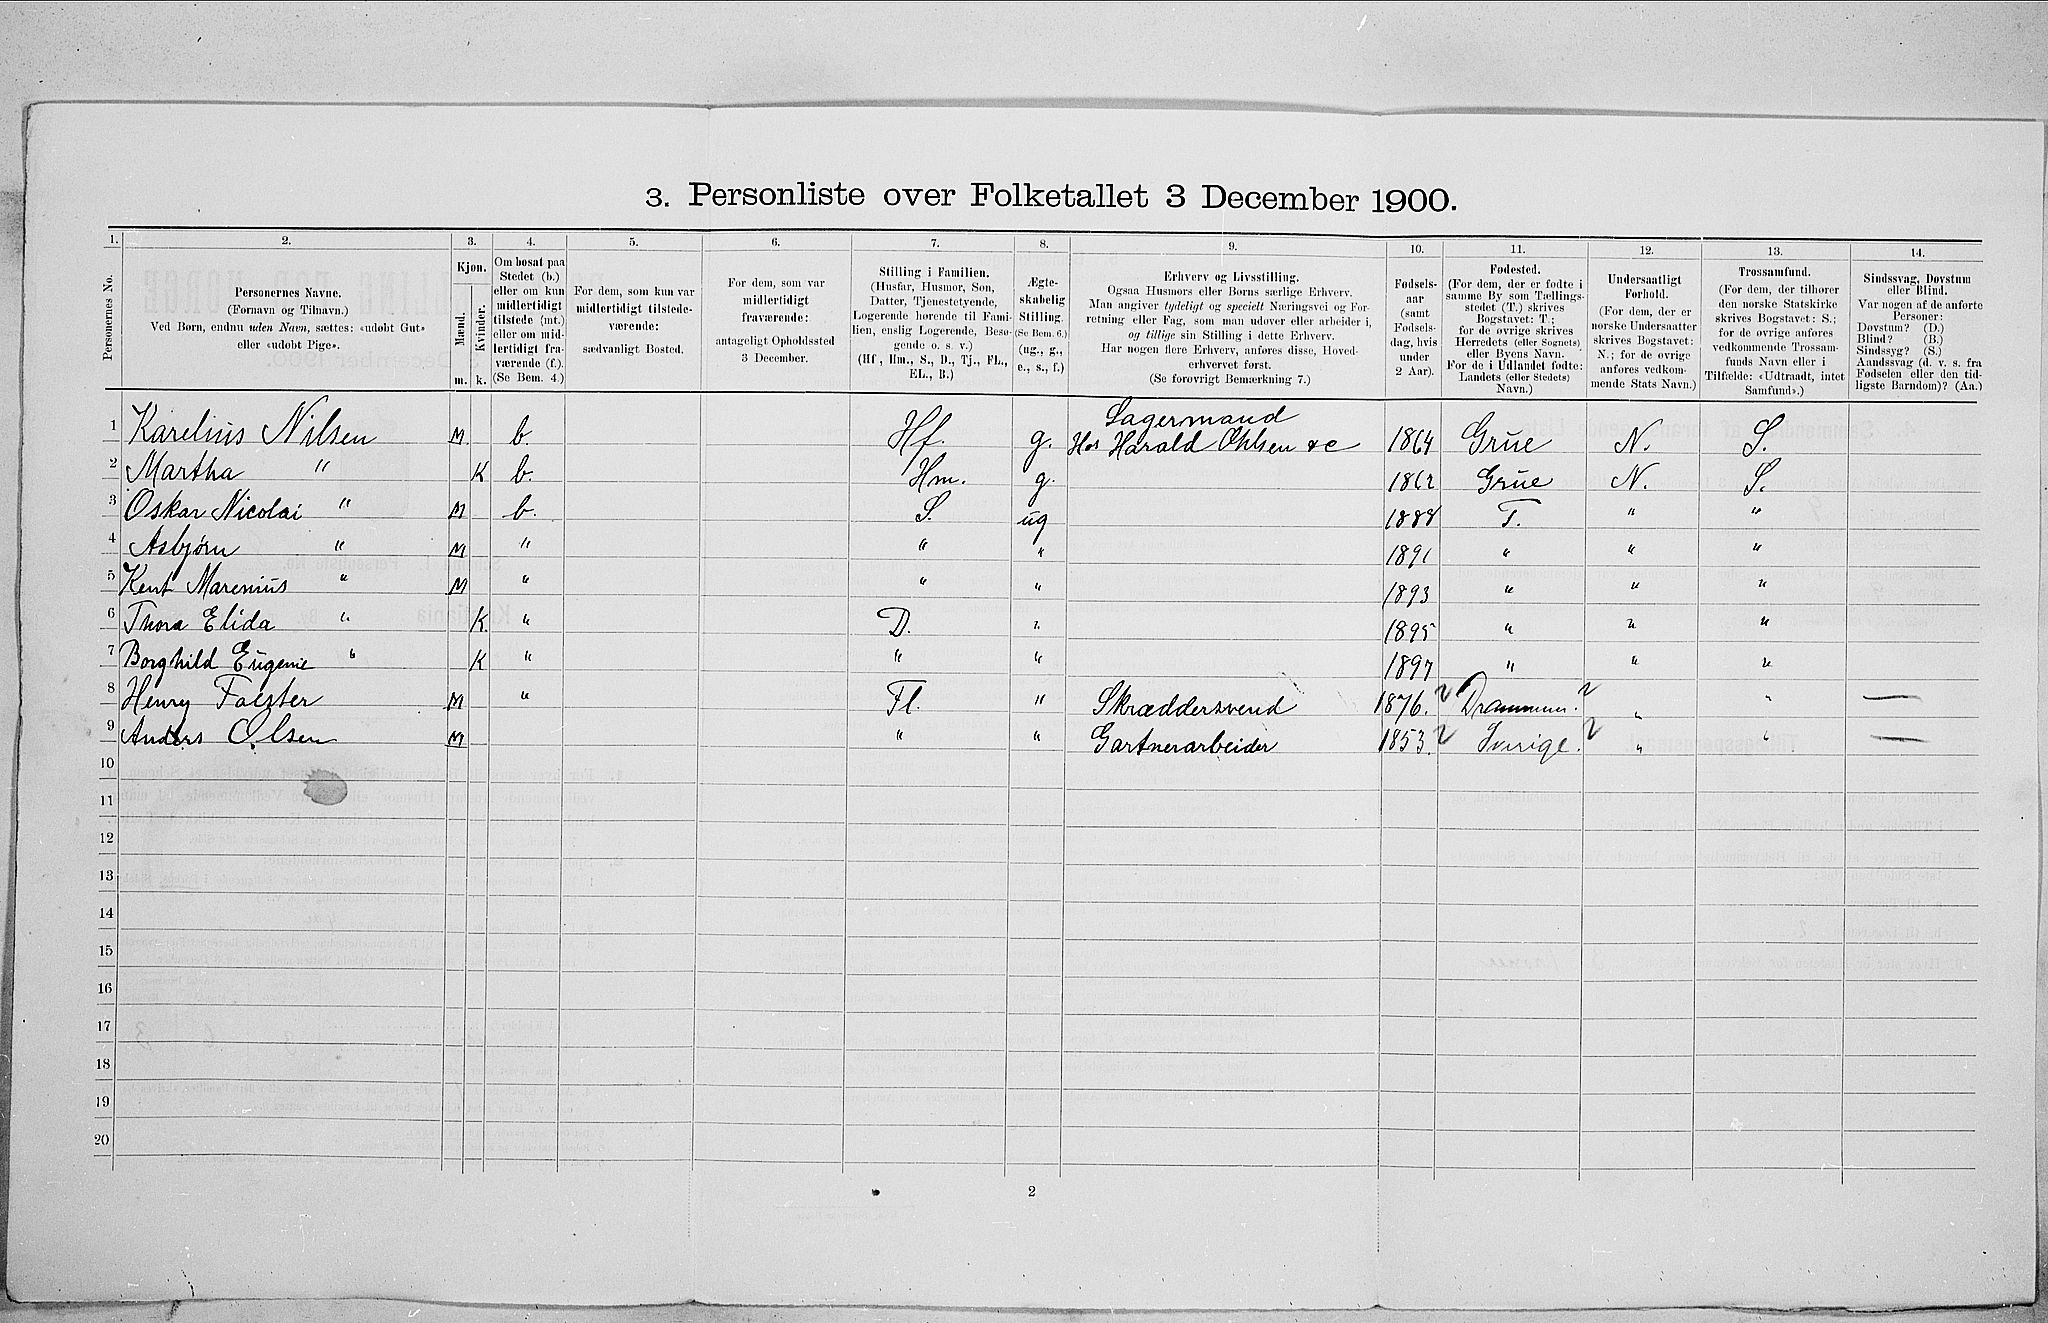 3. Personliste over Folketallet 3 December 1900.
1. 2. 3. 4. 5. 6. 7. 8. 9. 10. 11. 12. 13. 14.
Personernes No.
Personernes Navne.
(Fornavn og Tilnavn.)
Ved Børn, endnu uden Navn, sættes: «udøbt Gut»
eller «udøbt Pige».
Kjøn.
Mænd.
Kvinder.
m. k.
Om bosat paa
Stedet (b.)
eller om kun
midlertidigt
tilstede (mt.)
eller om mid-
lertidigt fra-
værende (f.).
(Se Bem. 4.)
For dem, som kun var
midlertidigt tilstede-
værende:
sædvanligt Bosted.
For dem, som var
midlertidigt
fraværende:
antageligt Opholdssted
3 December.
Stilling i Familien.
(Husfar, Husmor, Søn,
Datter, Tjenestetyende,
Logerende hørende til Fami-
lien, enslig Logerende, Besø-
gende o. s. v.)
(Hf., Hm., S., D., Tj., FL.,
EL., B.)
Ægte-
skabelig
Stilling.
(Se Bem. 6.)
(ug., g.,
e., s., f.)
Erhverv og Livsstilling.
Ogsaa Husmors eller Børns særlige Erhverv.
Man angiver tydeligt og specielt Næringsvei og For-
retning eller Fag, som man udøver eller arbeider i,
og tillige sin Stilling i dette Erhverv.
Har nogen flere Erhverv, anføres disse, Hoved-
erhvervet først.
(Se forøvrigt Bemærkning 7.)
Fødsels-
aar
(samt
Fødsels-
dag, hvis
under
2 Aar).
Fødested.
(For dem, der er fødte i
samme By som Tællings-
stedet (T.) skrives
Bogstavet: T.;
for de øvrige skrives
Herredets (eller Sognets)
eller Byens Navn.
For de i Udlandet fødte:
Landets (eller Stedets)
Navn.)
Undersaatligt
Forhold.
(For dem, der er
norske Undersaatter
skrives Bogstavet:
N.; for de øvrige
anføres vedkom-
mende Stats Navn.)
Trossamfund.
(For dem, der tilhører
den norske Statskirke
skrives Bogstavet: S.;
for de øvrige anføres
vedkommende Trossam-
funds Navn eller i
Tilfælde: «Udtraadt, intet
Samfund».)
Sindssvag, Døvstum
eller Blind.
Var nogen af de anførte
Personer:
Døvstum? (D.)
Blind? (B.)
Sindssyg? (S.)
Aandssvag (d. v. s. fra
Fødselen eller den tid-
ligste Barndom)? (Aa.)
1 Karelius Nilsen M b. Hf. g. Lagermand
Hos Harald Ohlsen & C 1864 Grue N. S.
2 Martha " K b. Hm. g. 1862 Grue N. S.
3 Oskar Nicolai " M b. S. ug 1888 T. " "
4 Asbjørn " M " " " 1891 " " "
5 Kent Marenius " M " " " 1893 " " "
6 Thora Elida " K " D. " 1895 " " "
7 Borghild Eugenie " K " " " 1897 " " "
8 Henry Falster M " Fl. " Skræddersvend 1876. Drammen. " " —
9 Anders Olsen M " " Gartnerarbeider 1853. Sverige. " " —
10
11
12
13
14
15
16
17
18
19
20
2